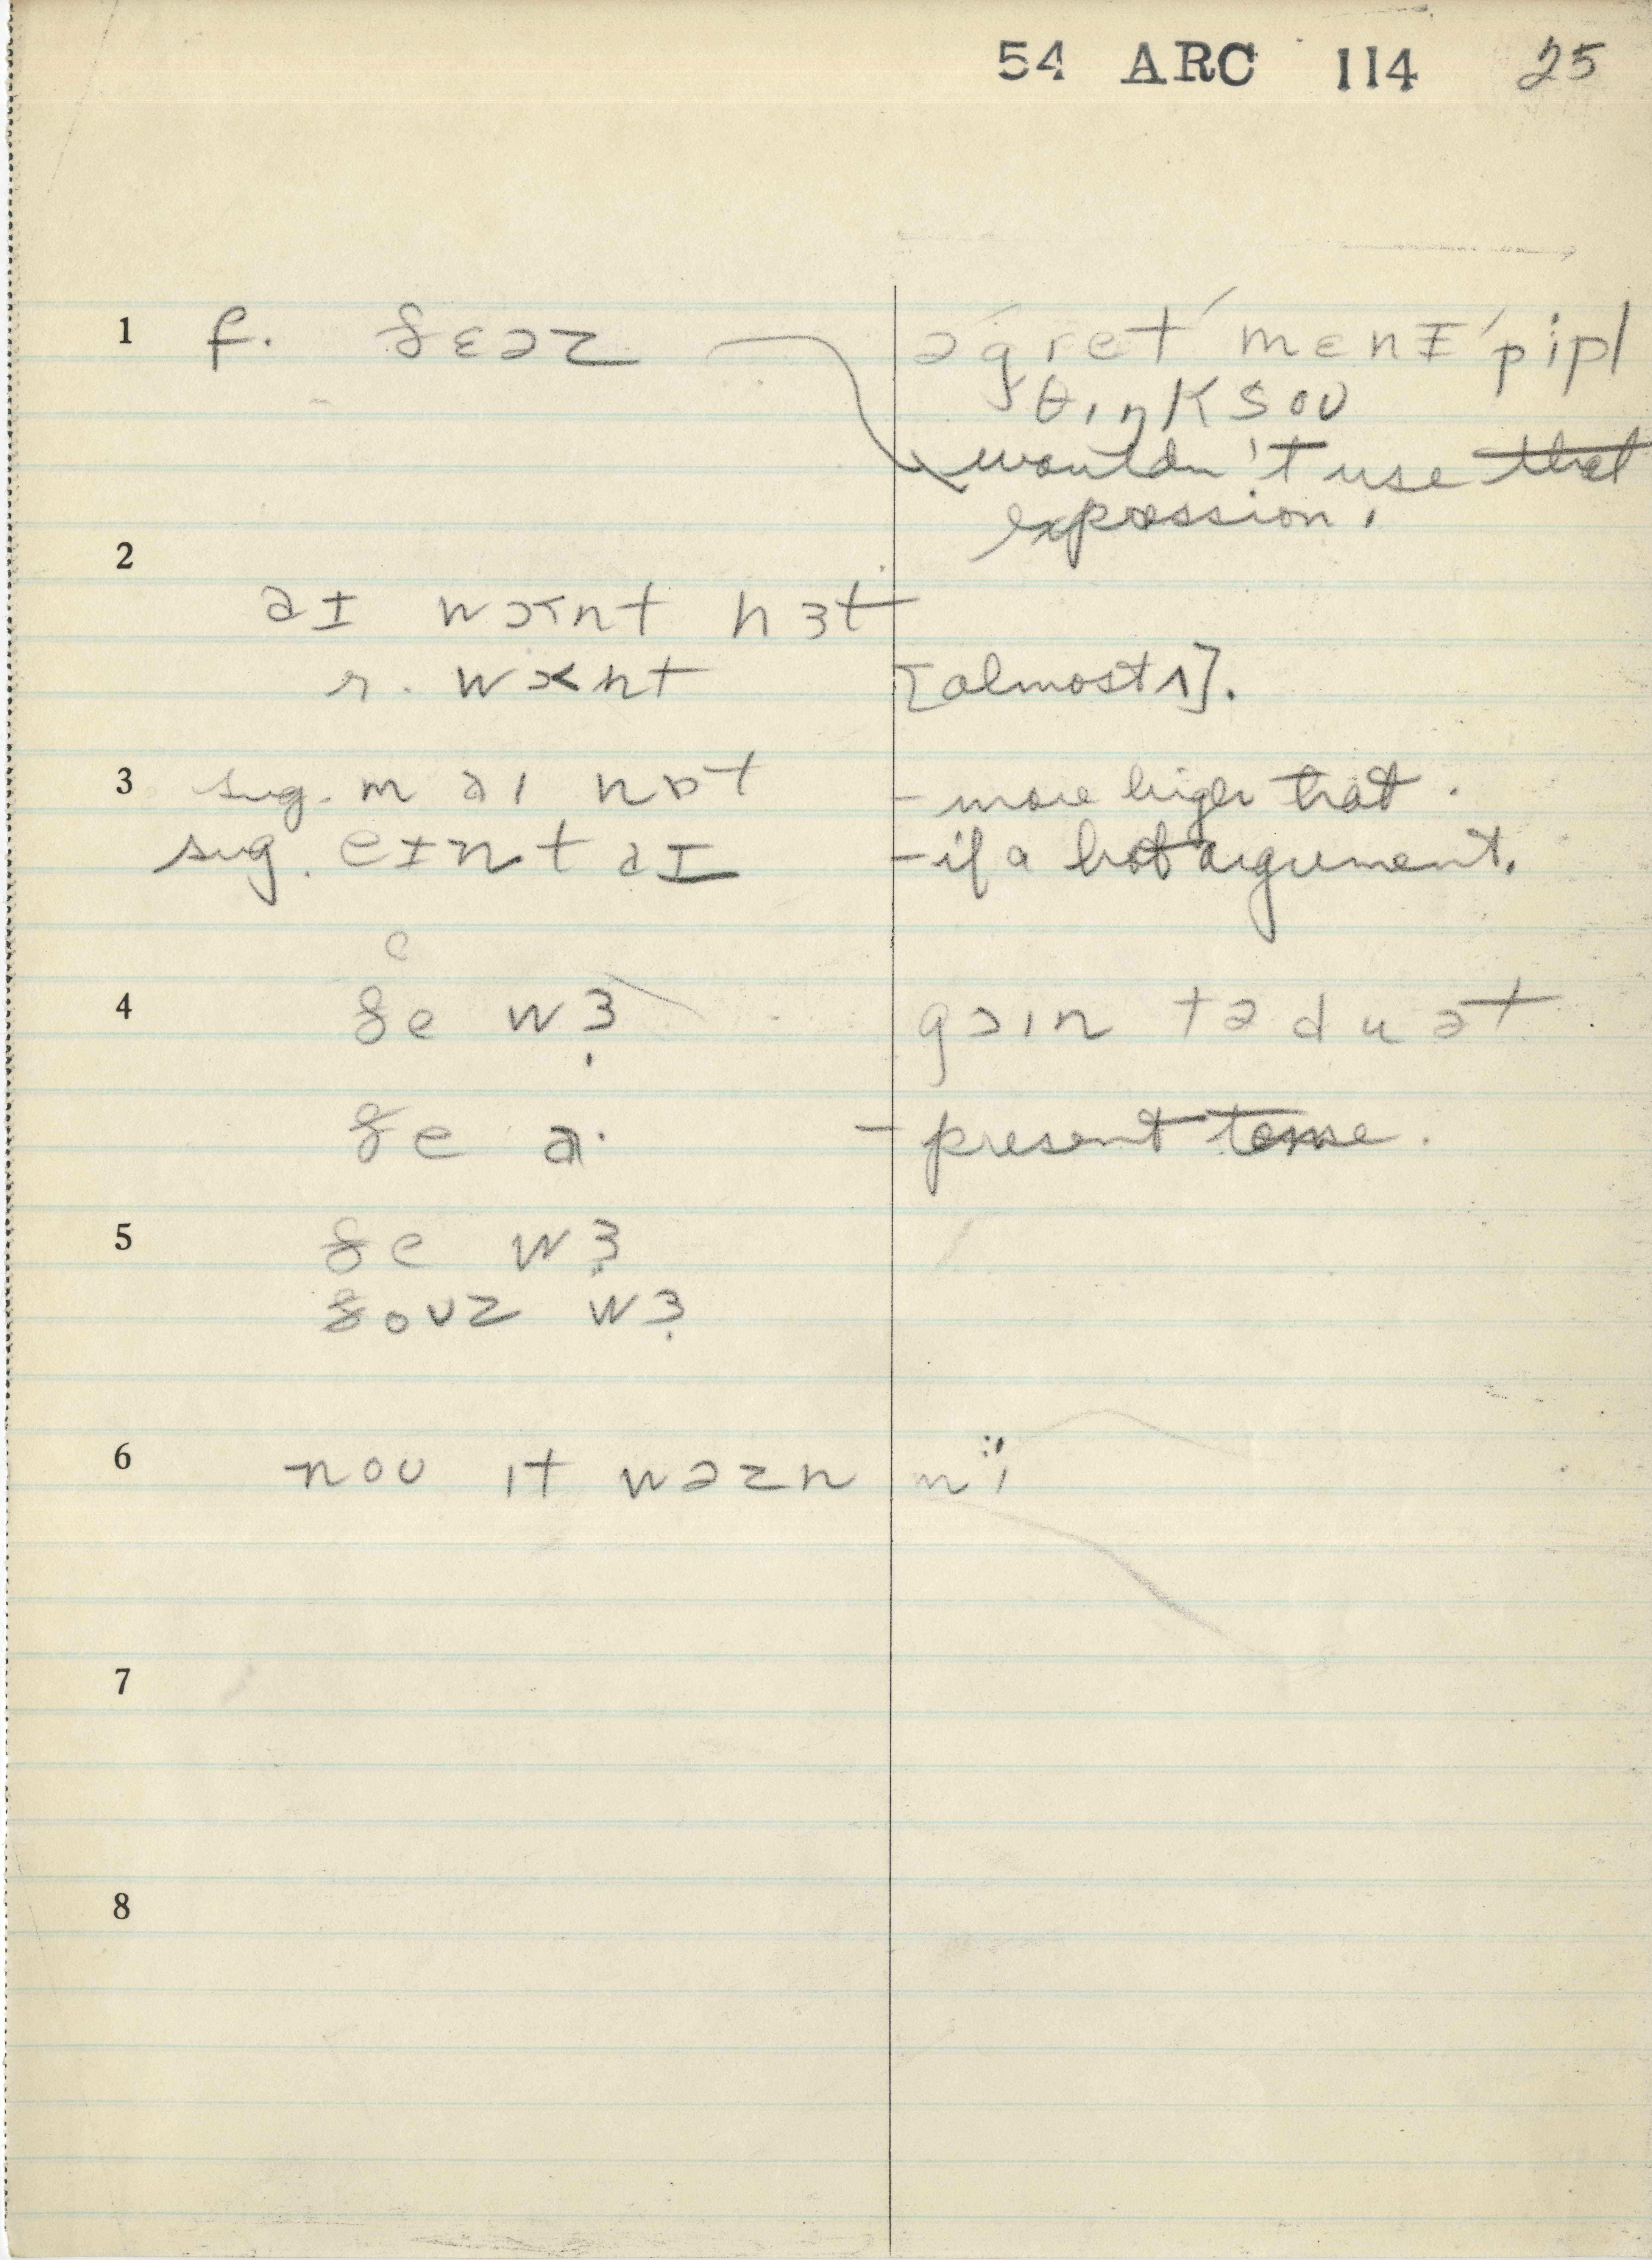 54 ARC 114 25
1 f. ðɛəz ə'gret'mɛnɪ'pipl
θɪŋk sou
wouldn't use that
expression.
2
aɪ wɔnt hɜt
r. wɔnt [almost ʌ].
3 sug. m aɪ nɒt - more liger that.
sug. eɪnt aɪ - if a hot argument.
e
4 ðe wɜ gɔɪn tə du ət
ðe a· - present tense.
5 ðe wɜ
ðouz wɜ
6 nou ɪt wəzn mi
7
8